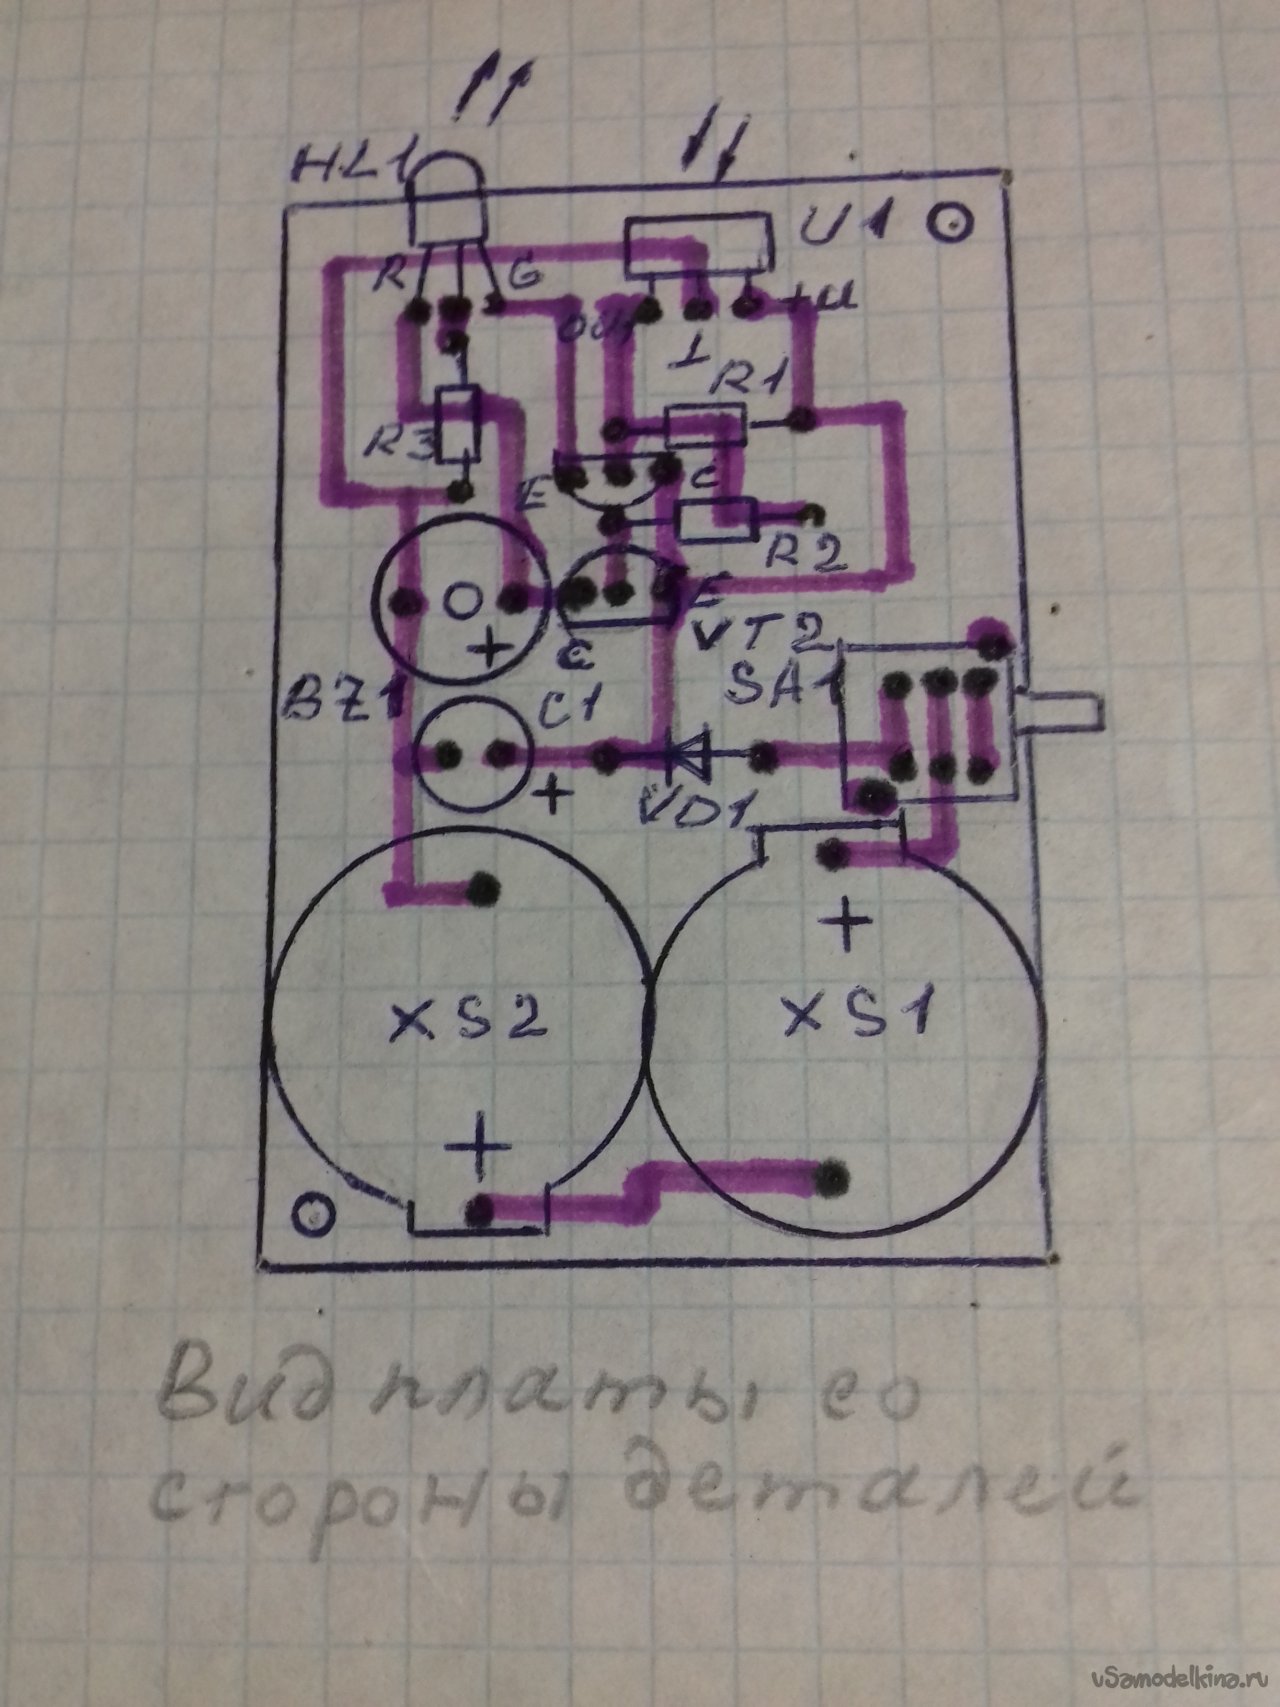 HL1
U1
R
G
out
⊥
+u
R1
R3
E
C
R2
E
VT2
+
C
SA1
BZ1
C1
+
VD1
+
XS2
XS1
+
Вид платы со
стороны деталей
vSamodelkina.ru